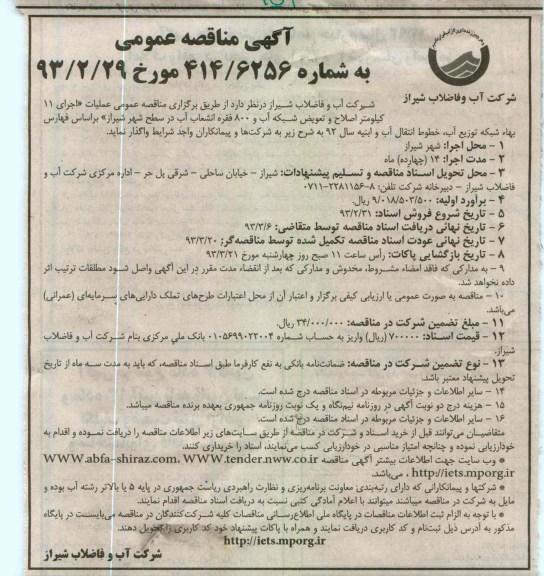 آگهی مناقصه عمومی
به شماره ۴۱۴/۶۲۵۶ مورخ ۹۳/۲/۲۹
شرکت آب وفاضلاب شیراز
شرکت آب و فاضلاب شیراز درنظر دارد از طریق برگزاری مناقصه عمومی عملیات «اجرای ۱۱
کیلومتر اصلاح و تعویض شبکه آب و ۸۰۰ فقره انشعاب آب در سطح شهر شیراز» براساس فهارس
بهاء شبکه توزیع آب، خطوط انتقال آب و ابنیه سال ۹۲ به شرح زیر به شرکت‌ها و پیمانکاران واجد شرایط واگذار نماید.
۱ – محل اجرا: شهر شیراز
۲ – مدت اجرا: ۱۴ (چهارده) ماه
۳ – محل تحویل اسناد مناقصه و تسلیم پیشنهادات: شیراز – خیابان ساحلی – شرقی پل حر – اداره مرکزی شرکت آب و
فاضلاب شیراز – دبیرخانه شرکت تلفن: ۸–۲۲۸۱۱۵۶–۰۷۱۱
۴ – برآورد اولیه: ۹/۰۱۸/۵۰۳/۵۰۰ ریال.
۵ – تاریخ شروع فروش اسناد: ۹۳/۲/۳۱
۶ – تاریخ نهائی دریافت اسناد مناقصه توسط متقاضی: ۹۳/۳/۶
۷ – تاریخ نهائی عودت اسناد مناقصه تکمیل شده توسط مناقصه‌گر: ۹۳/۳/۲۰
۸ – تاریخ بازگشایی پاکات: رأس ساعت ۱۱ صبح روز چهارشنبه مورخ ۹۳/۳/۲۱
۹ – به مدارکی که فاقد امضاء مشروط، مخدوش و مدارکی که بعد از انقضاء مدت مقرر در این آگهی واصل شود مطلقات ترتیب اثر
داده نخواهد شد.
۱۰ – مناقصه به صورت عمومی با ارزیابی کیفی برگزار و اعتبار آن از محل اعتبارات طرح‌های تملک دارایی‌های سرمایه‌ای (عمرانی)
می‌باشد.
۱۱ – مبلغ تضمین شرکت در مناقصه: ۳۴۰/۰۰۰/۰۰۰ ریال.
۱۲ – قیمت اسناد: ۷۰۰۰۰۰ (ریال) واریز به حساب شماره ۰۱۰۵۶۹۹۰۲۲۰۰۴ بانک ملی مرکزی بنام شرکت آب و فاضلاب
شیراز.
۱۳ – نوع تضمین شرکت در مناقصه: ضمانت‌نامه بانکی به نفع کارفرما طبق اسناد مناقصه، که باید به مدت سه ماه از تاریخ
تحویل پیشنهاد معتبر باشد.
۱۴ – سایر اطلاعات و جزئیات مربوطه در اسناد مناقصه درج شده است.
۱۵ – هزینه درج دو نوبت آگهی در روزنامه نیم‌نگاه و یک نوبت روزنامه جمهوری بعهده برنده مناقصه میباشد.
۱۶ – سایر اطلاعات و جزئیات مربوطه در اسناد مناقصه درج شده است.
متقاضیان می‌توانند قبل از خرید اسناد و شرکت در مناقصه از طریق سایت‌های زیر اطلاعات مناقصه را دریافت نموده و اقدام به
خودارزیابی نموده و چنانچه امتیاز مناسبی در خودارزیابی کسب می‌نمایند، اسناد را خریداری کنند.
* وب سایت جهت اطلاعات بیشتر آگهی مناقصه WWW.abfa-shiraz.com، WWW.tender.nww.co.ir
http://iets.mporg.ir ، می‌باشد.
* شرکتها و پیمانکارانی که دارای رتبه‌بندی معاونت برنامه‌ریزی و نظارت راهبردی ریاست جمهوری در پایه ۵ یا بالاتر رشته آب بوده و
مایل به شرکت در مناقصه میباشند میتوانند با اعلام آمادگی کتبی نسبت به دریافت اسناد مناقصه اقدام نمایند.
* با توجه به الزام ثبت اطلاعات مناقصات در پایگاه ملی اطلاع‌رسانی مناقصات کلیه شرکت‌کنندگان در مناقصه می‌بایست در پایگاه
مذکور به آدرس ذیل ثبت‌نام و کد کاربری دریافت نمایند و همراه با پاکات پیشنهاد خود کد کاربری را تحویل دهند.
http://iets.mporg.ir
شرکت آب و فاضلاب شیراز